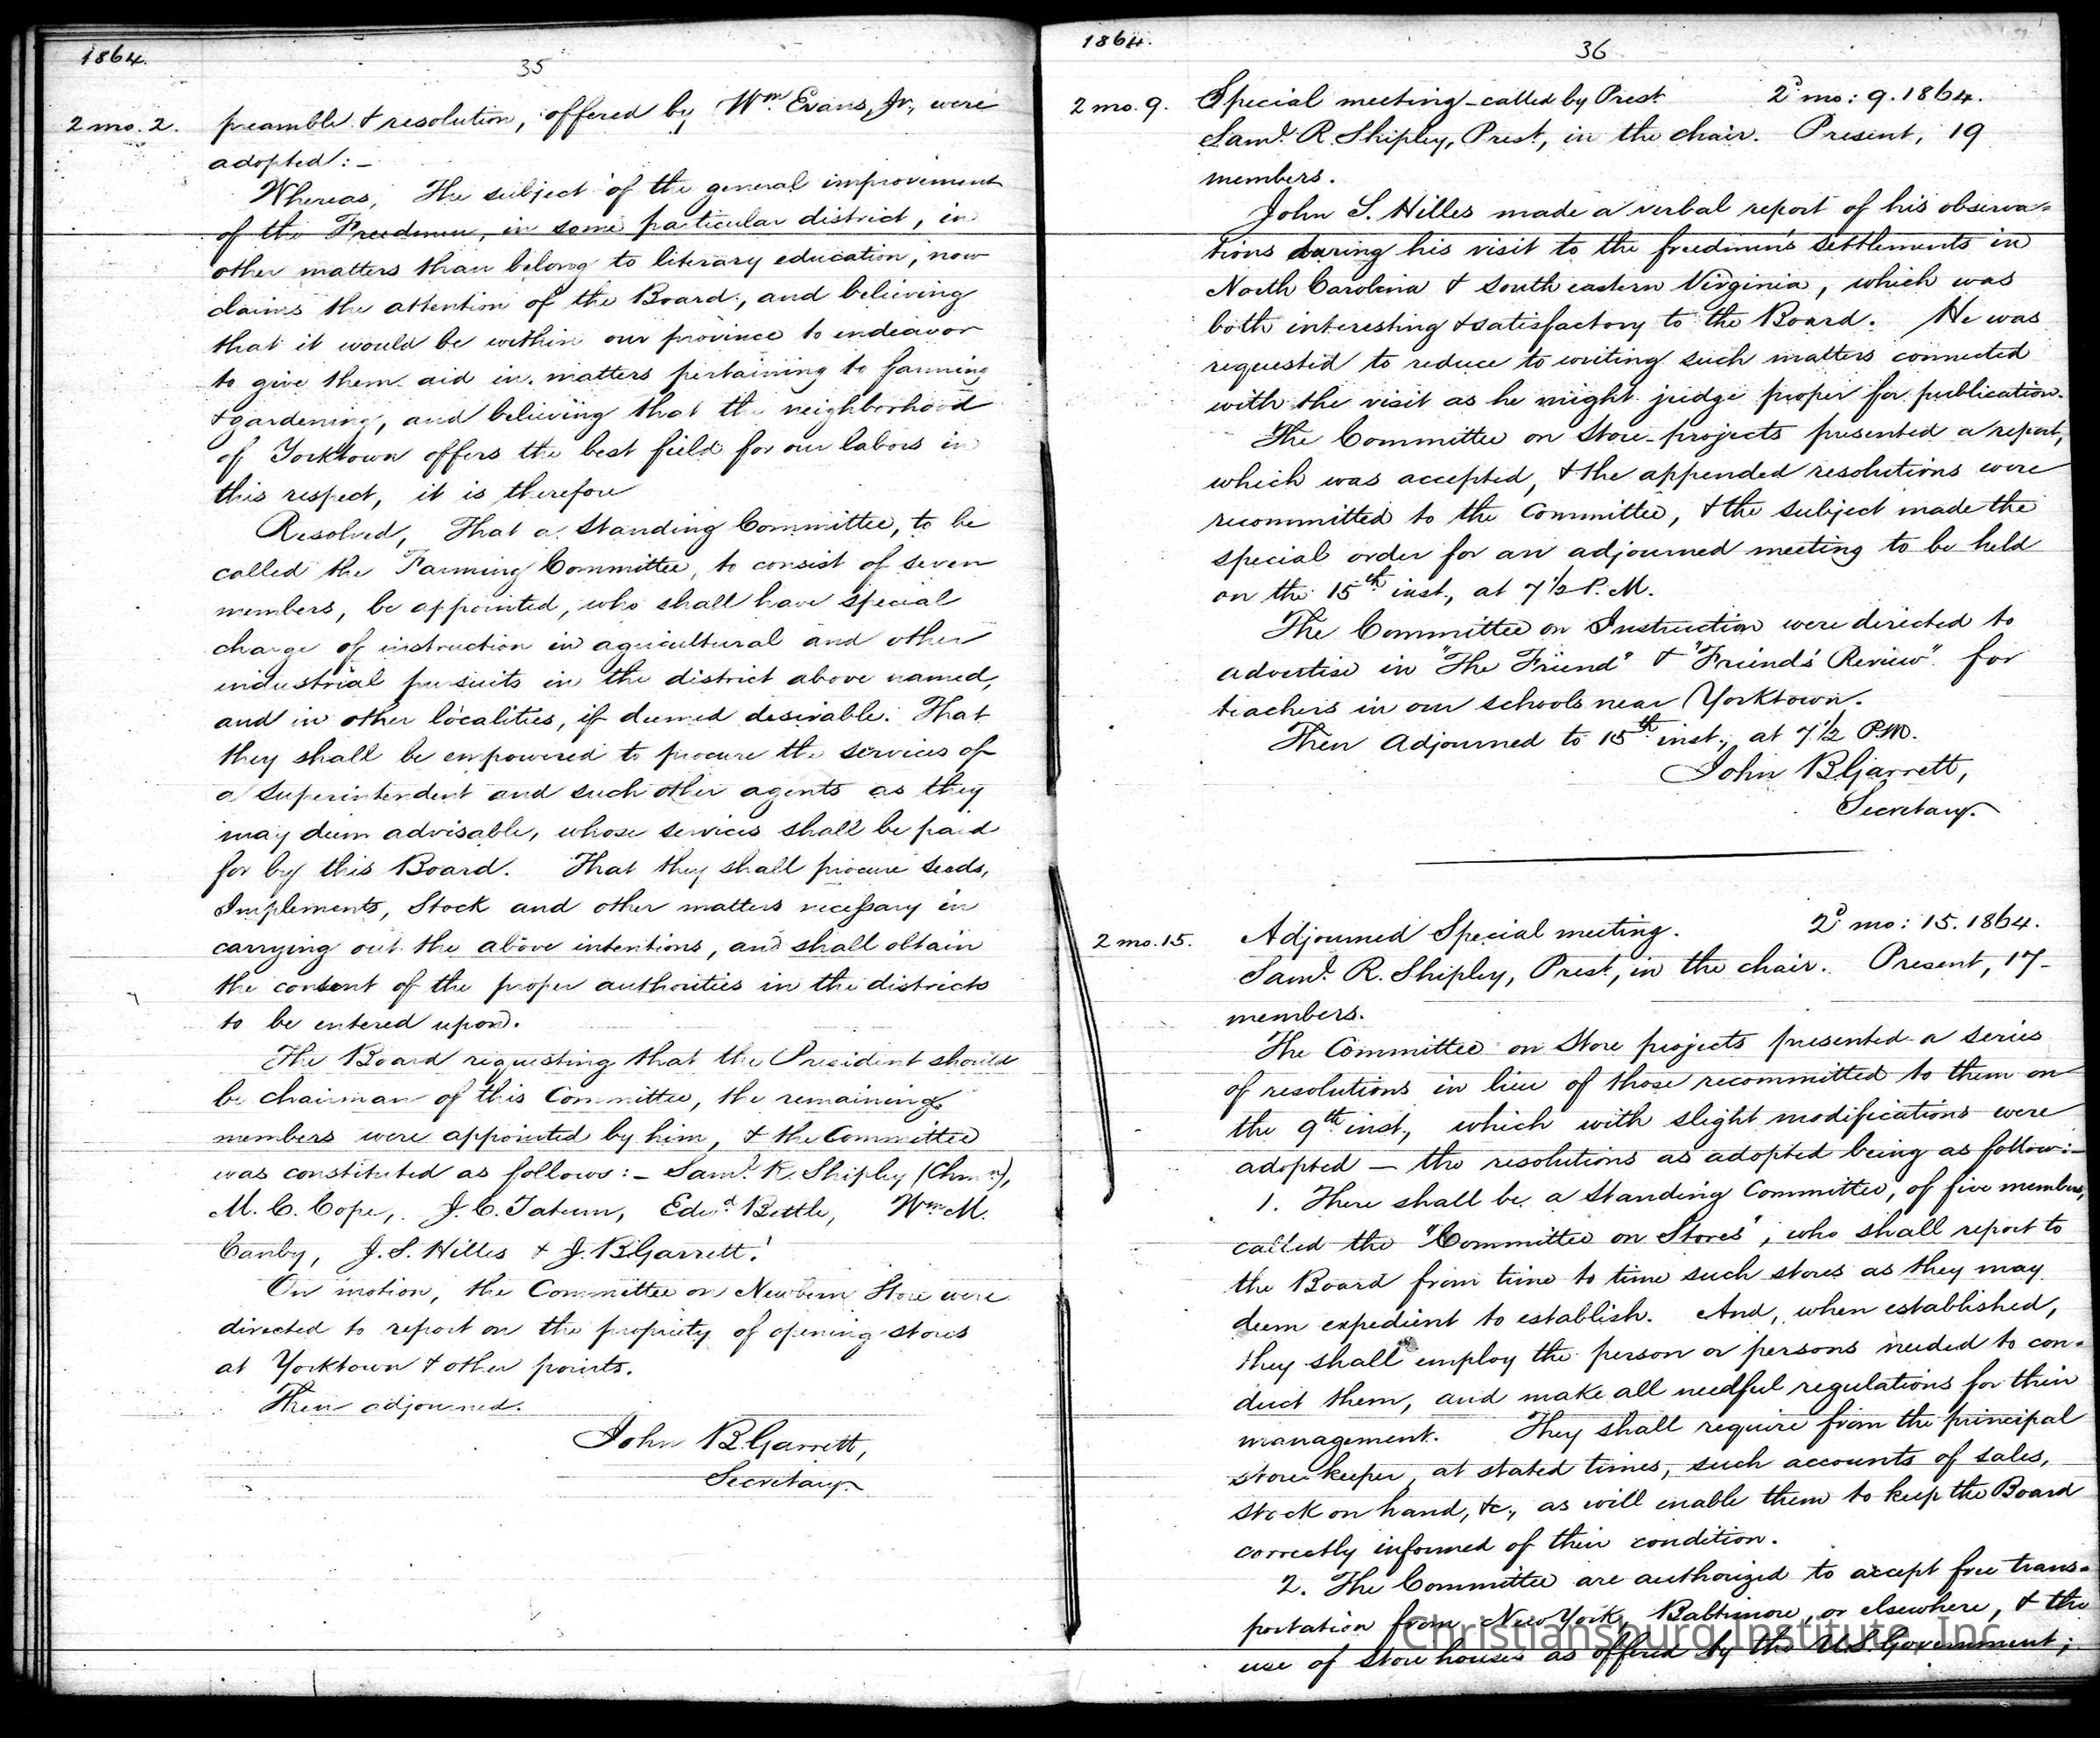 1864.
35
2 mo. 2.
preamble & resolution, offered by Wm Evans, Jr., were
adopted: –
Whereas, The subject of the general improvement
of the Freedmen, in some particular district, in
other matters than belong to literary education, now
claims the attention of the Board; and believing
that it would be within our province to endeavor
to give them aid in matters pertaining to farming
& gardening, and believing that the neighborhood
of Yorktown offers the best field for our labors in
this respect, it is therefore
Resolved, That a Standing Committee, to be
called the Farming Committee, to consist of seven
members, be appointed, who shall have special
charge of instruction in agricultural and other
industrial pursuits in the district above named,
and in other localities, if deemed desirable. That
they shall be empowered to procure the services of
a Superintendent and such other agents as they
may deem advisable, whose services shall be paid
for by this Board. That they shall procure seeds,
Implements, Stock and other matters necessary in
carrying out the above intentions, and shall obtain
the consent of the proper authorities in the districts
to be entered upon.
The Board requesting that the President should
be chairman of this Committee, the remaining
members were appointed by him, & the Committee
was constituted as follows: – Saml. R. Shipley (Chmn),
M. C. Cope, J. C. Tatum, Edwd Bettle, Wm M.
Canby, J. S. Hilles & J. B. Garrett.
On motion, the Committee on Newbern Store were
directed to report on the propriety of opening stores
at Yorktown & other points.
Then adjourned.
John B. Garrett,
Secretary.
1864.
36
2 mo. 9.
Special meeting – called by Prest. 2d mo: 9. 1864.
Saml. R. Shipley, Prest., in the chair. Present, 19
members.
John S. Hilles made a verbal report of his observa=
tions during his visit to the freedmen's settlements in
North Carolina & south eastern Virginia, which was
both interesting & satisfactory to the Board. He was
requested to reduce to writing such matters connected
with the visit as he might judge proper for publication.
The Committee on Store-projects presented a report,
which was accepted, & the appended resolutions were
recommitted to the Committee, & the subject made the
special order for an adjourned meeting to be held
on the 15th inst., at 7 1/2 P. M.
The Committee on Instruction were directed to
advertise in "The Friend" & "Friends' Review" for
teachers in our schools near Yorktown.
Then Adjourned to 15th inst., at 7 1/2 P.M.
John B. Garrett,
Secretary.
2 mo. 15.
Adjourned Special meeting. 2d mo: 15. 1864.
Saml. R. Shipley, Prest., in the chair. Present, 17
members.
The Committee on Store projects presented a series
of resolutions in lieu of those recommitted to them on
the 9th inst., which with slight modifications were
adopted – the resolutions as adopted being as follow: –
1. There shall be a Standing Committee, of five members,
called the "Committee on Stores", who shall report to
the Board from time to time such stores as they may
deem expedient to establish. And, when established,
they shall employ the person or persons needed to con=
duct them, and make all needful regulations for their
management. They shall require from the principal
store keeper, at stated times, such accounts of sales,
stock on hand, &c., as will enable them to keep the Board
correctly informed of their condition.
2. The Committee are authorized to accept free trans=
portation from New York, Baltimore, or elsewhere, & the
use of store houses as offered by the U.S. Government;
Christiansburg Institute, Inc.